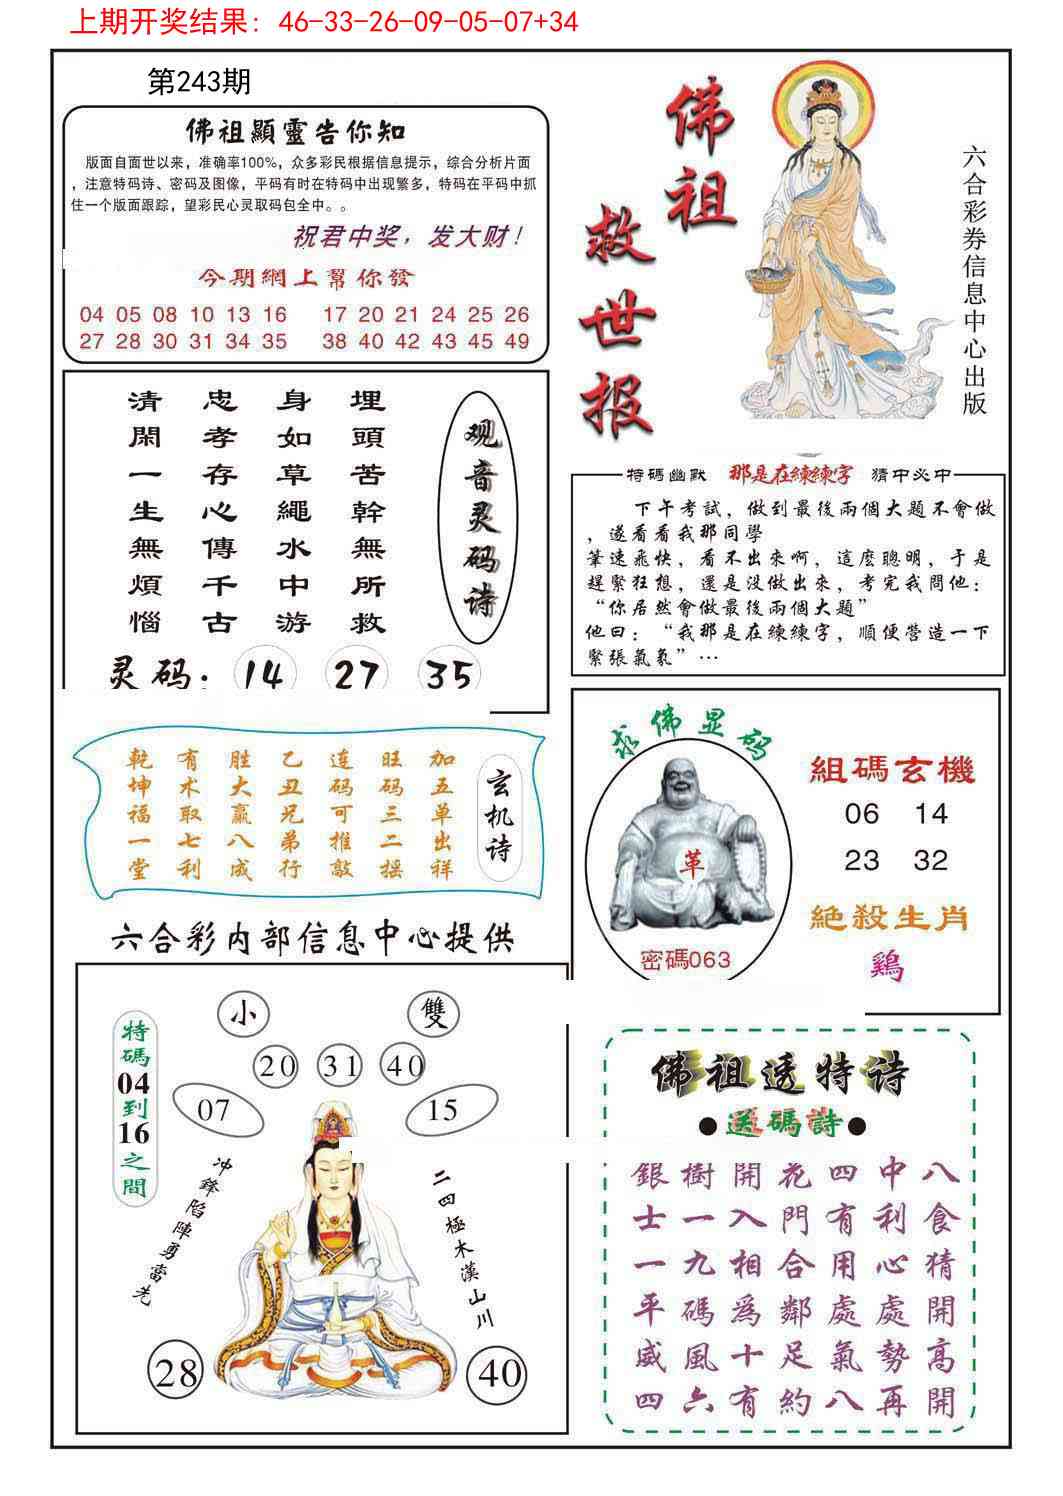 上期开奖结果：46-33-26-09-05-07+34
第243期
佛祖顯靈告你知
版面自面世以来，准确率100%，众多彩民根据信息提示，综合分析片面
，注意特码诗、密码及图像，平码有时在特码中出现繁多，特码在平码中抓
住一个版面跟踪，望彩民心灵取码包全中。。
祝君中奖，发大财！
今期網上幫你發
04 05 08 10 13 16 17 20 21 24 25 26
27 28 30 31 34 35 38 40 42 43 45 49
佛祖
救世报
六合彩券信息中心出版
观音灵码诗
埋頭苦幹無所救
身如草繩水中游
忠孝存心傳千古
清閑一生無煩惱
灵码：14 27 35
特碼幽默 那是在練練字 猜中必中
下午考試，做到最後兩個大題不會做
，遂看看我那同學
筆速飛快，看不出來啊，這麼聰明，于是
趕緊狂想，還是没做出來，考完我問他：
“你居然會做最後兩個大題”
他曰：“我那是在練練字，順便營造一下
緊張氣氛”…
玄机诗
加五单出祥
旺码三二摇
连码可推敲
乙丑兄弟行
胜大赢八成
有术取七利
乾坤福一堂
求佛显码
革
密碼063
組碼玄機
06 14
23 32
絶殺生肖
鷄
六合彩内部信息中心提供
小 雙
20 31 40
07 15
特碼04到16之間
冲鋒陷陣勇當先
二四極木漢山川
28 40
佛祖透特诗
●送碼詩●
銀樹開花四中八
士一入門有利食
一九相合用心猜
平碼爲鄰處處開
威風十足氣勢高
四六有約八再開